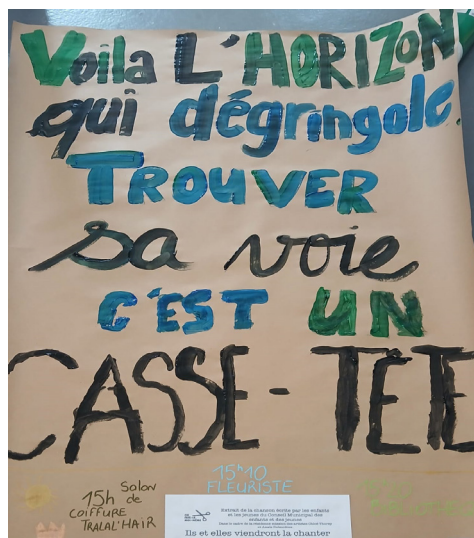 Voila L'HORIZON
qui dégringole.
TROUVER
sa voie
C'EST UN
CASSE-TÊTE
15h10
FLEURISTE
15h Salon
de
COIFFURE
TRALAL'HAIR
Extrait de la chanson écrite par les enfants
et les jeunes du Conseil Municipal des
enfants et des jeunes
Ils et elles viendront la chanter